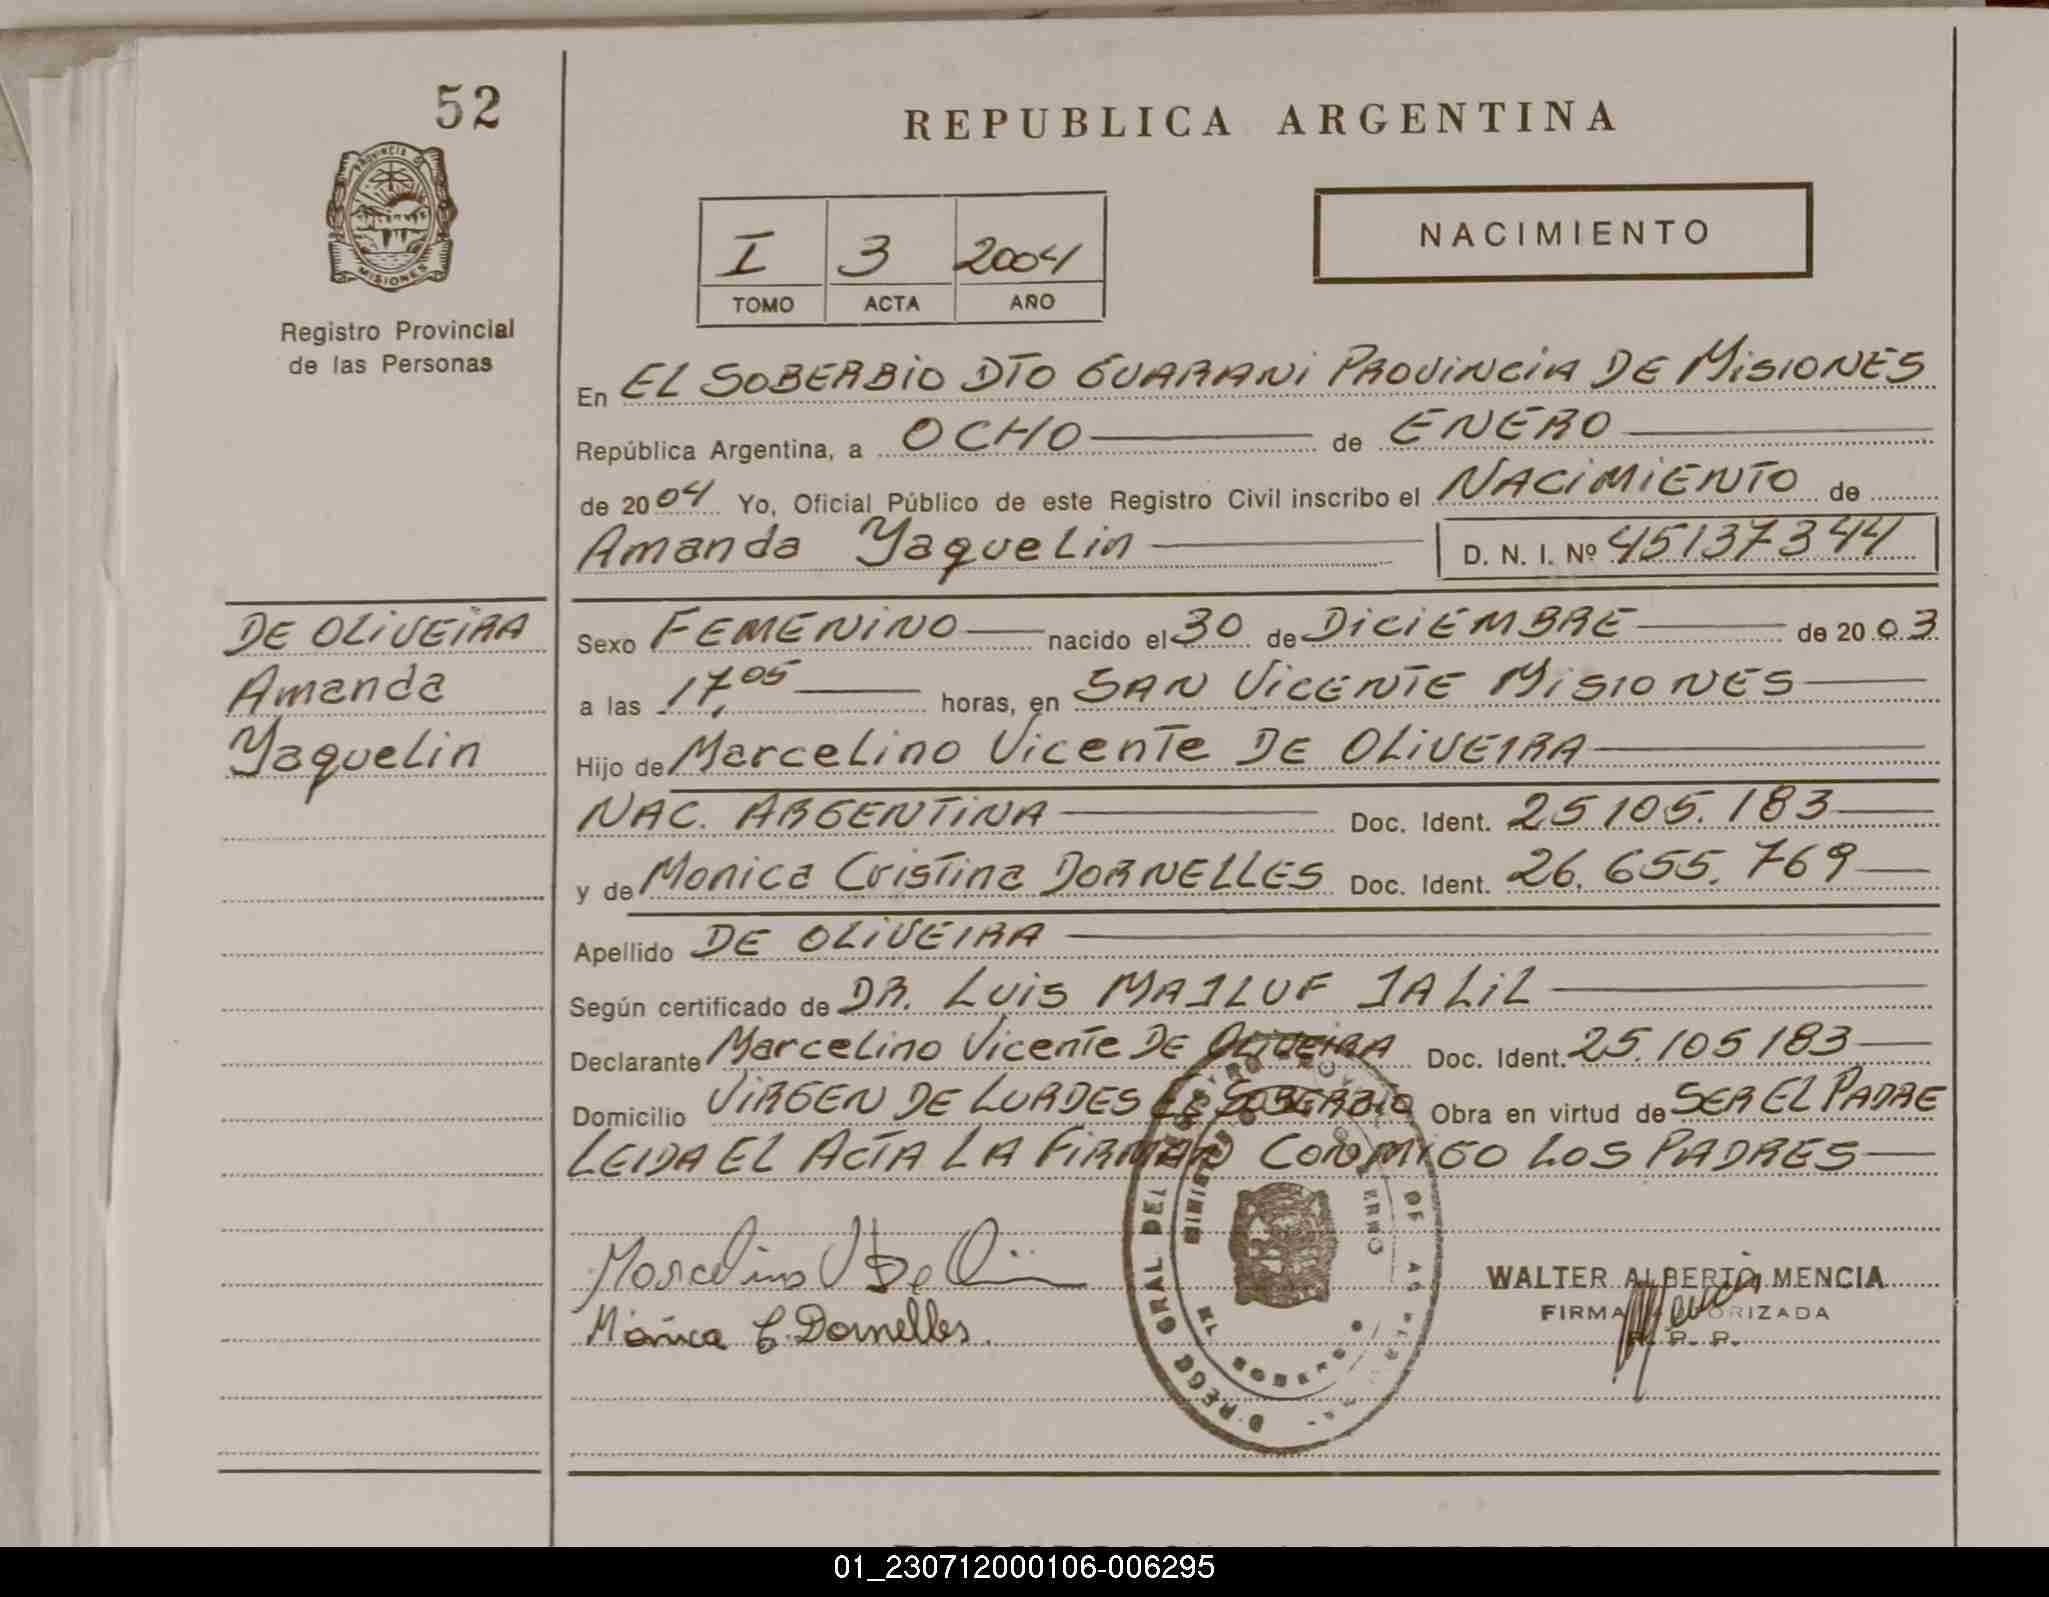 52
PROVINCIA DE
MISIONES
Registro Provincial
de las Personas
REPUBLICA ARGENTINA
I 3 2004
TOMO ACTA AÑO
NACIMIENTO
En EL SOBERBIO DTO GUARANI PROVINCIA DE MISIONES
República Argentina, a OCHO de ENERO
de 2004 Yo, Oficial Público de este Registro Civil inscribo el NACIMIENTO de
Amanda Yaquelin D. N. I. Nº 45137344
DE OLIVEIRA
Amanda
Yaquelin
Sexo FEMENINO nacido el 30 de DICIEMBRE de 2003
a las 17,05 horas, en SAN VICENTE MISIONES
Hijo de Marcelino Vicente DE OLIVEIRA
NAC. ARGENTINA Doc. Ident. 25105.183
y de Monica Cristina DORNELLES Doc. Ident. 26.655.769
Apellido DE OLIVEIRA
Según certificado de DR. LUIS MAJLUF JALIL
Declarante Marcelino Vicente DE OLIVEIRA Doc. Ident. 25.105183
Domicilio VIRGEN DE LURDES EL SOBERBIO Obra en virtud de SER EL PADRE
LEIDA EL ACTA LA FIRMAN CONMIGO LOS PADRES
Marcelino V De Oli
Mónica C. Dornelles.
GRAL DEL
WALTER ALBERTO MENCIA
FIRMA AUTORIZADA
R. P. P.
01_230712000106-006295